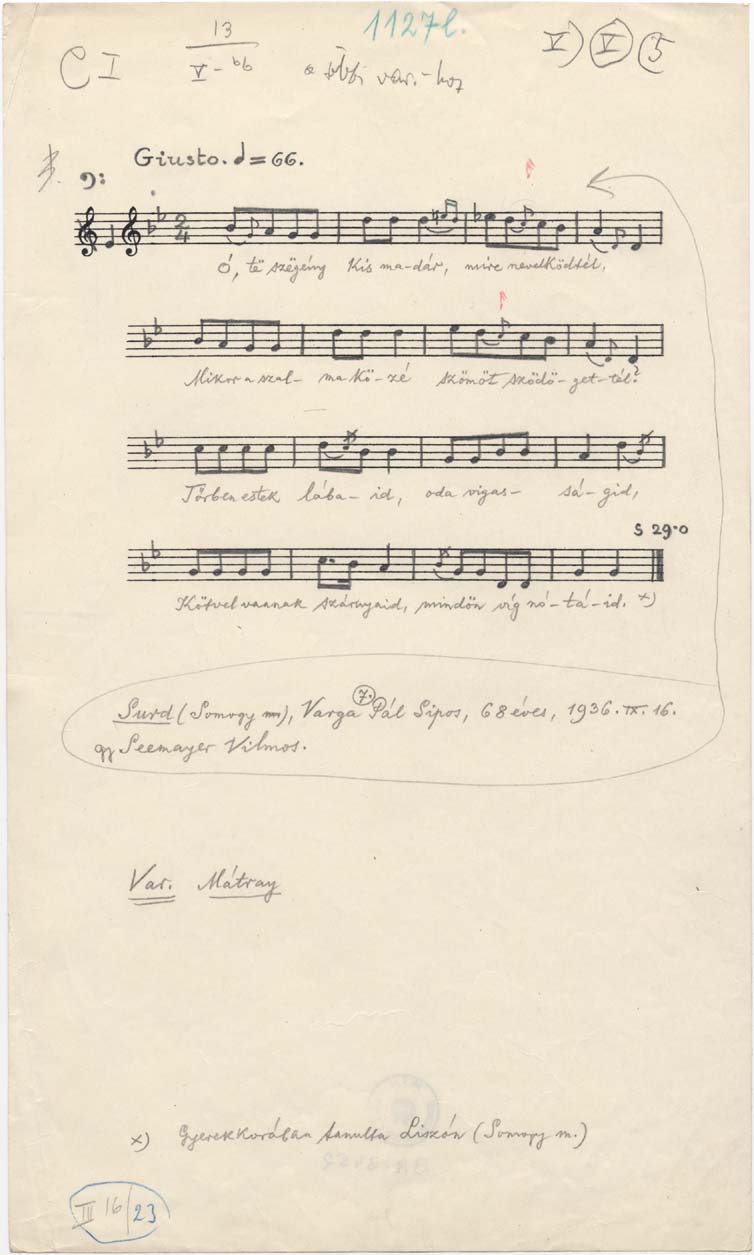 1127l.
13
C I
V - bb
a többi var.-hoz
V) V 5
Giusto. = 66.
Ó, të szëgény kis ma-dár, mire nevelködtél,
Mikor a szal- ma kö-zé szömöt sződö-get-tél?
Tőrben estek lába-id, oda vigas- sá-gid,
S 29·0
Kötvel vannak szárnyaid, mindön víg nó-tá-id. x)
Surd (Somogy m), Varga 7. Pál Sipos, 68 éves, 1936. IX. 16.
gy Seemayer Vilmos.
Var. Mátray
x) Gyerekkorában tanulta Liszón (Somogy m.)
III 16/23